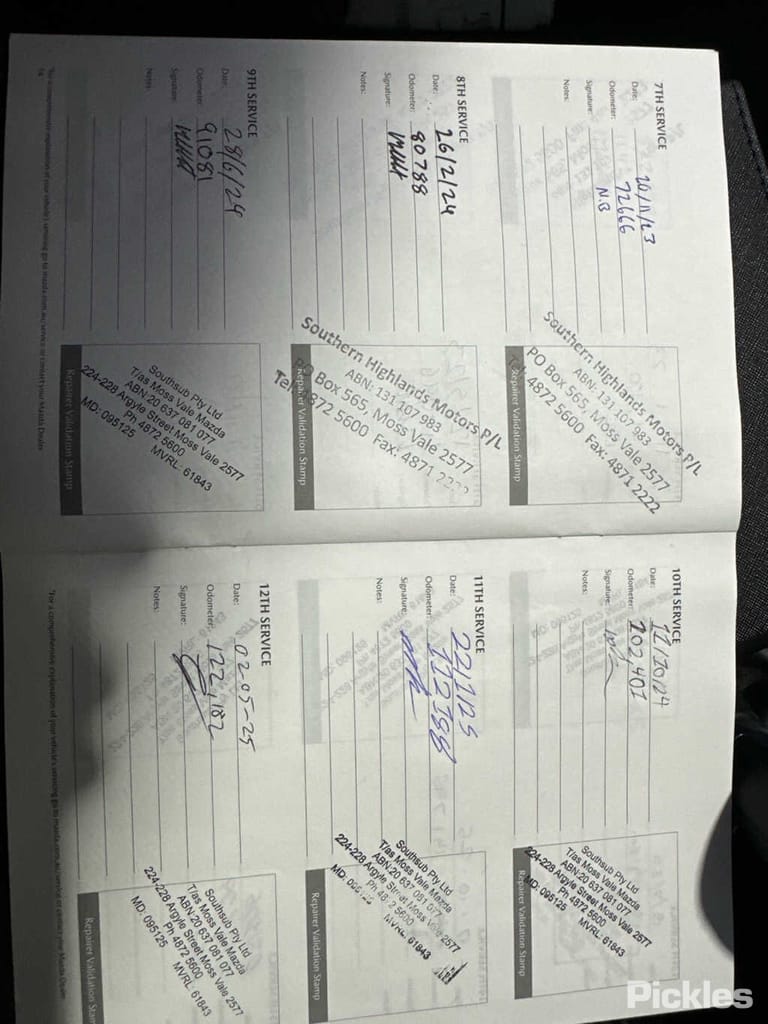 7TH SERVICE
Date: 20/11/23
Odometer: 72666
Signature: N.B
Notes:
Southern Highlands Motors P/L
ABN: 131 107 983
PO Box 565, Moss Vale 2577
4872 5600 Fax: 4871 2222
Repairer Validation Stamp
8TH SERVICE
Date: 26/2/24
Odometer: 80788
Signature:
Notes:
Southern Highlands Motors P/L
ABN: 131 107 983
PO Box 565, Moss Vale 2577
Tel: 4872 5600 Fax: 4871 2222
Repairer Validation Stamp
9TH SERVICE
Date: 28/6/24
Odometer: 91081
Signature:
Notes:
Southsub Pty Ltd
T/as Moss Vale Mazda
ABN:20 637 081 077
224-228 Argyle Street Moss Vale 2577
Ph 4872 5600
MD: 095125 MVRL: 61843
Repairer Validation Stamp
*For a comprehensive explanation of your vehicle's servicing go to mazda.com.au/service or contact your Mazda Dealer
10TH SERVICE
Date: 11/10/24
Odometer: 102401
Signature:
Notes:
Southsub Pty Ltd
T/as Moss Vale Mazda
ABN:20 637 081 077
224-228 Argyle Street Moss Vale 2577
Ph 4872 5600
MD: 095125 MVRL: 61843
Repairer Validation Stamp
11TH SERVICE
Date: 22/1/25
Odometer: 112388
Signature:
Notes:
Southsub Pty Ltd
T/as Moss Vale Mazda
ABN:20 637 081 077
224-228 Argyle Street Moss Vale 2577
Ph 4872 5600
MD: 095125 MVRL: 61843
Repairer Validation Stamp
12TH SERVICE
Date: 02-05-25
Odometer: 122,182
Signature:
Notes:
Southsub Pty Ltd
T/as Moss Vale Mazda
ABN:20 637 081 077
224-228 Argyle Street Moss Vale 2577
Ph 4872 5600
MD: 095125 MVRL: 61843
Repairer Validation Stam
*For a comprehensive explanation of your vehicle's servicing go to mazda.com.au/service or contact your Mazda Dealer
Pickles